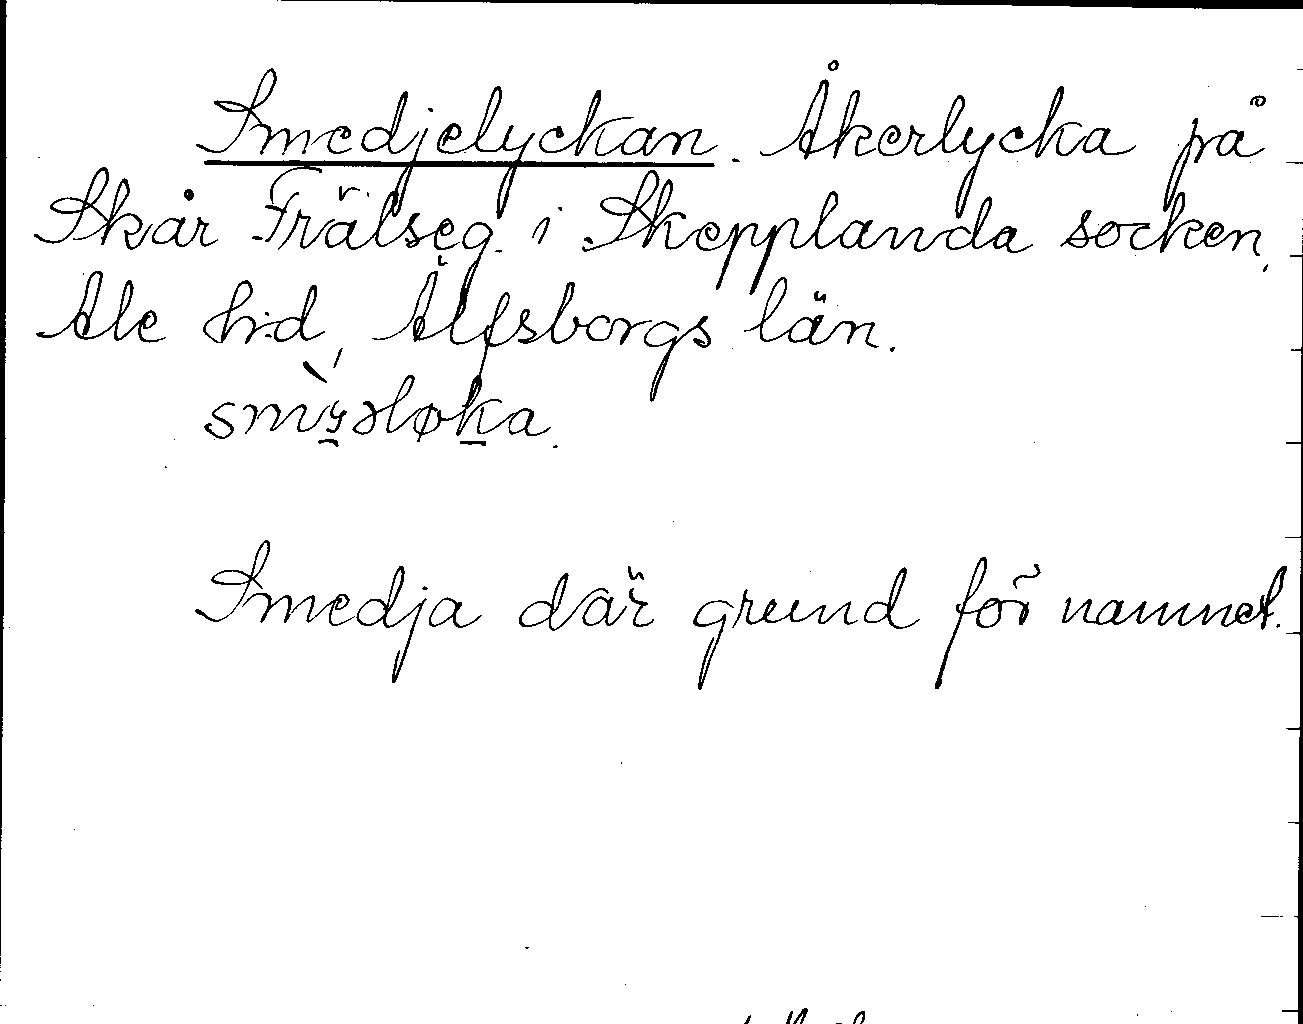 Smedjelyckan. Åkerlycka på
Skår Frälseg. i Skepplanda socken,
Ale hd, Älfsborgs län.
Smedja där grund för namnet.